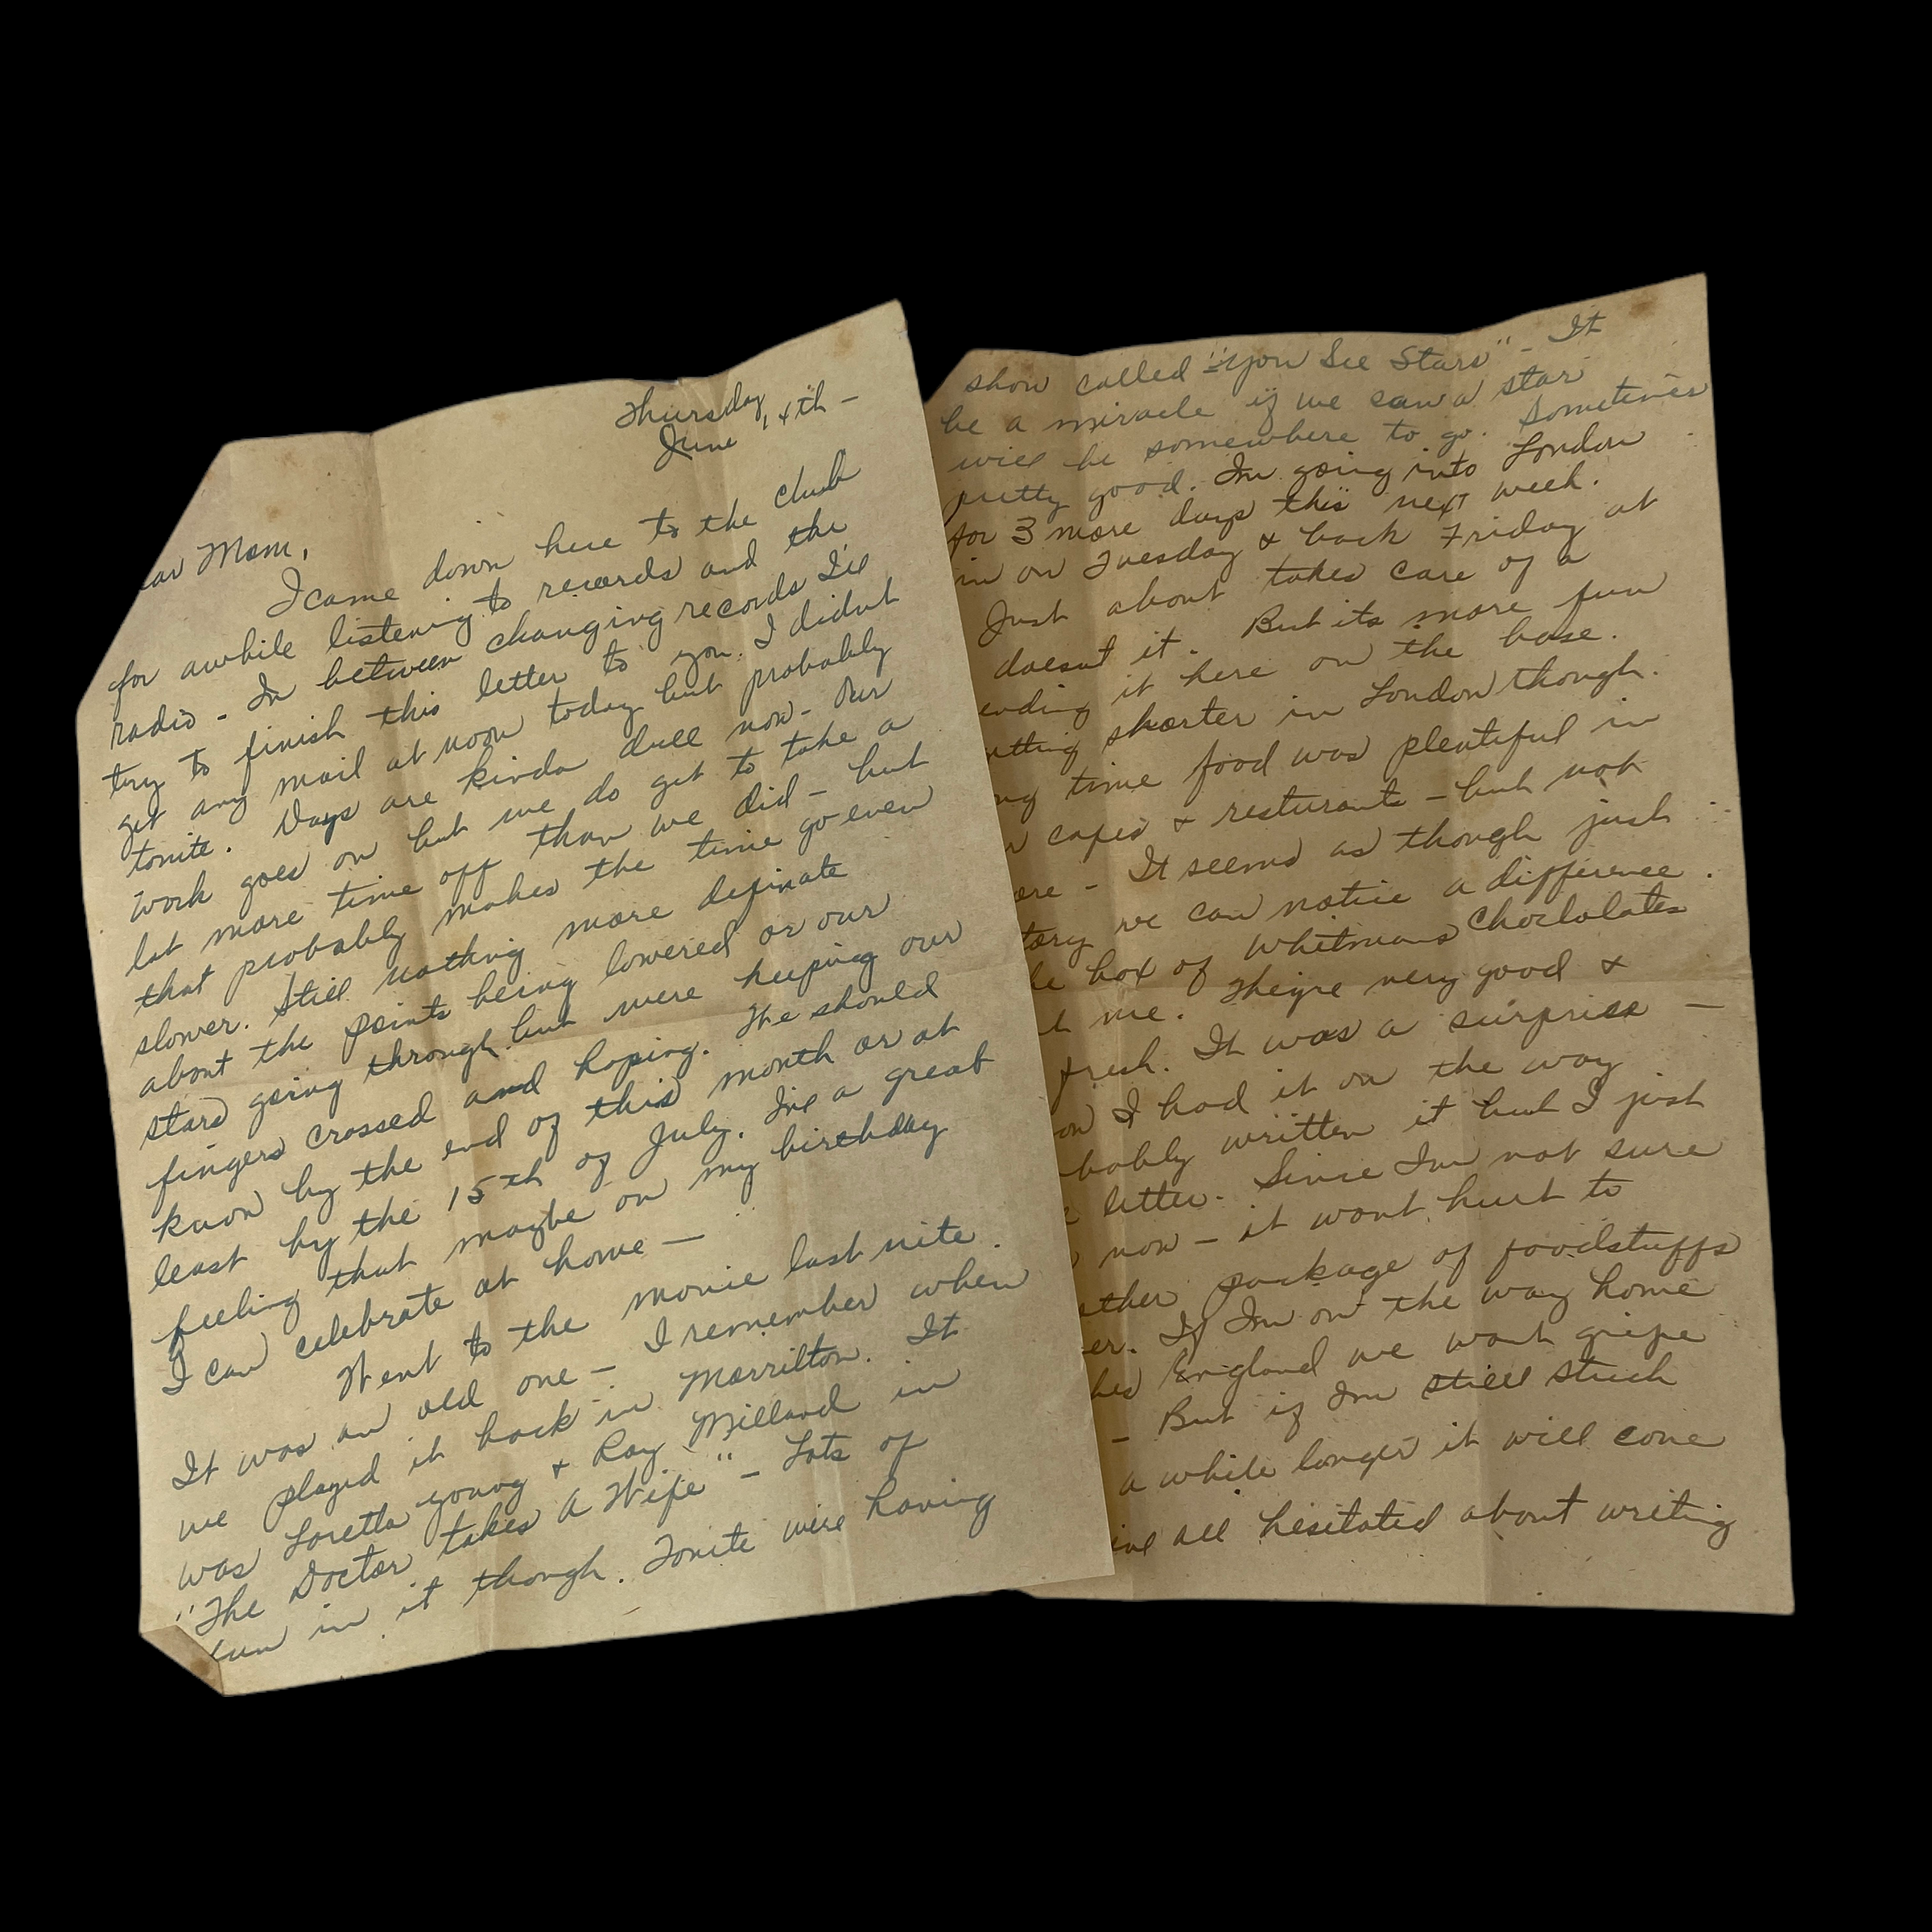 Thursday,
June 14th —
ear Mom,
I came down here to the club
for awhile listening to records and the
radio - In between changing records I'll
try to finish this letter to you. I didnt
get any mail at noon today but probably
tonite. Days are kinda dull now - Our
work goes on but we do get to take a
lot more time off than we did - but
that probably makes the time go even
slower. Still nothing more definate
about the points being lowered or our
stars going through but were keeping our
fingers crossed and hoping. We should
know by the end of this month or at
least by the 15th of July. Ive a great
feeling that maybe on my birthday
I can celebrate at home —
Went to the movie last nite.
It was an old one — I remember when
we played it back in Morrilton. It
was Loretta Young + Ray Milland in
"The Doctor takes A Wife" - Lots of
fun in it though. Tonite were having
show called "You See Stars" - It
be a miracle if we saw a star
will be somewhere to go. Sometimes
pretty good. Im going into London
for 3 more days this next week.
in on Tuesday & back Friday at
Just about takes care of a
doesnt it. But its more fun
ending it here on the base.
etting shorter in London though.
ng time food was plentiful in
cafes & resturants - but not
ore - It seems as though just
tory we can notice a difference.
he box of Whitmans Choclolates
t me. Theyre very good &
fresh. It was a surprise —
on I had it on the way
bably written it but I just
letter. Since Im not sure
now - it wont hurt to
ther package of foodstuffs
er. If Im on the way home
hed England we wont gripe
- But if Im still stuck
a while longer it will come
ive all hesitated about writing